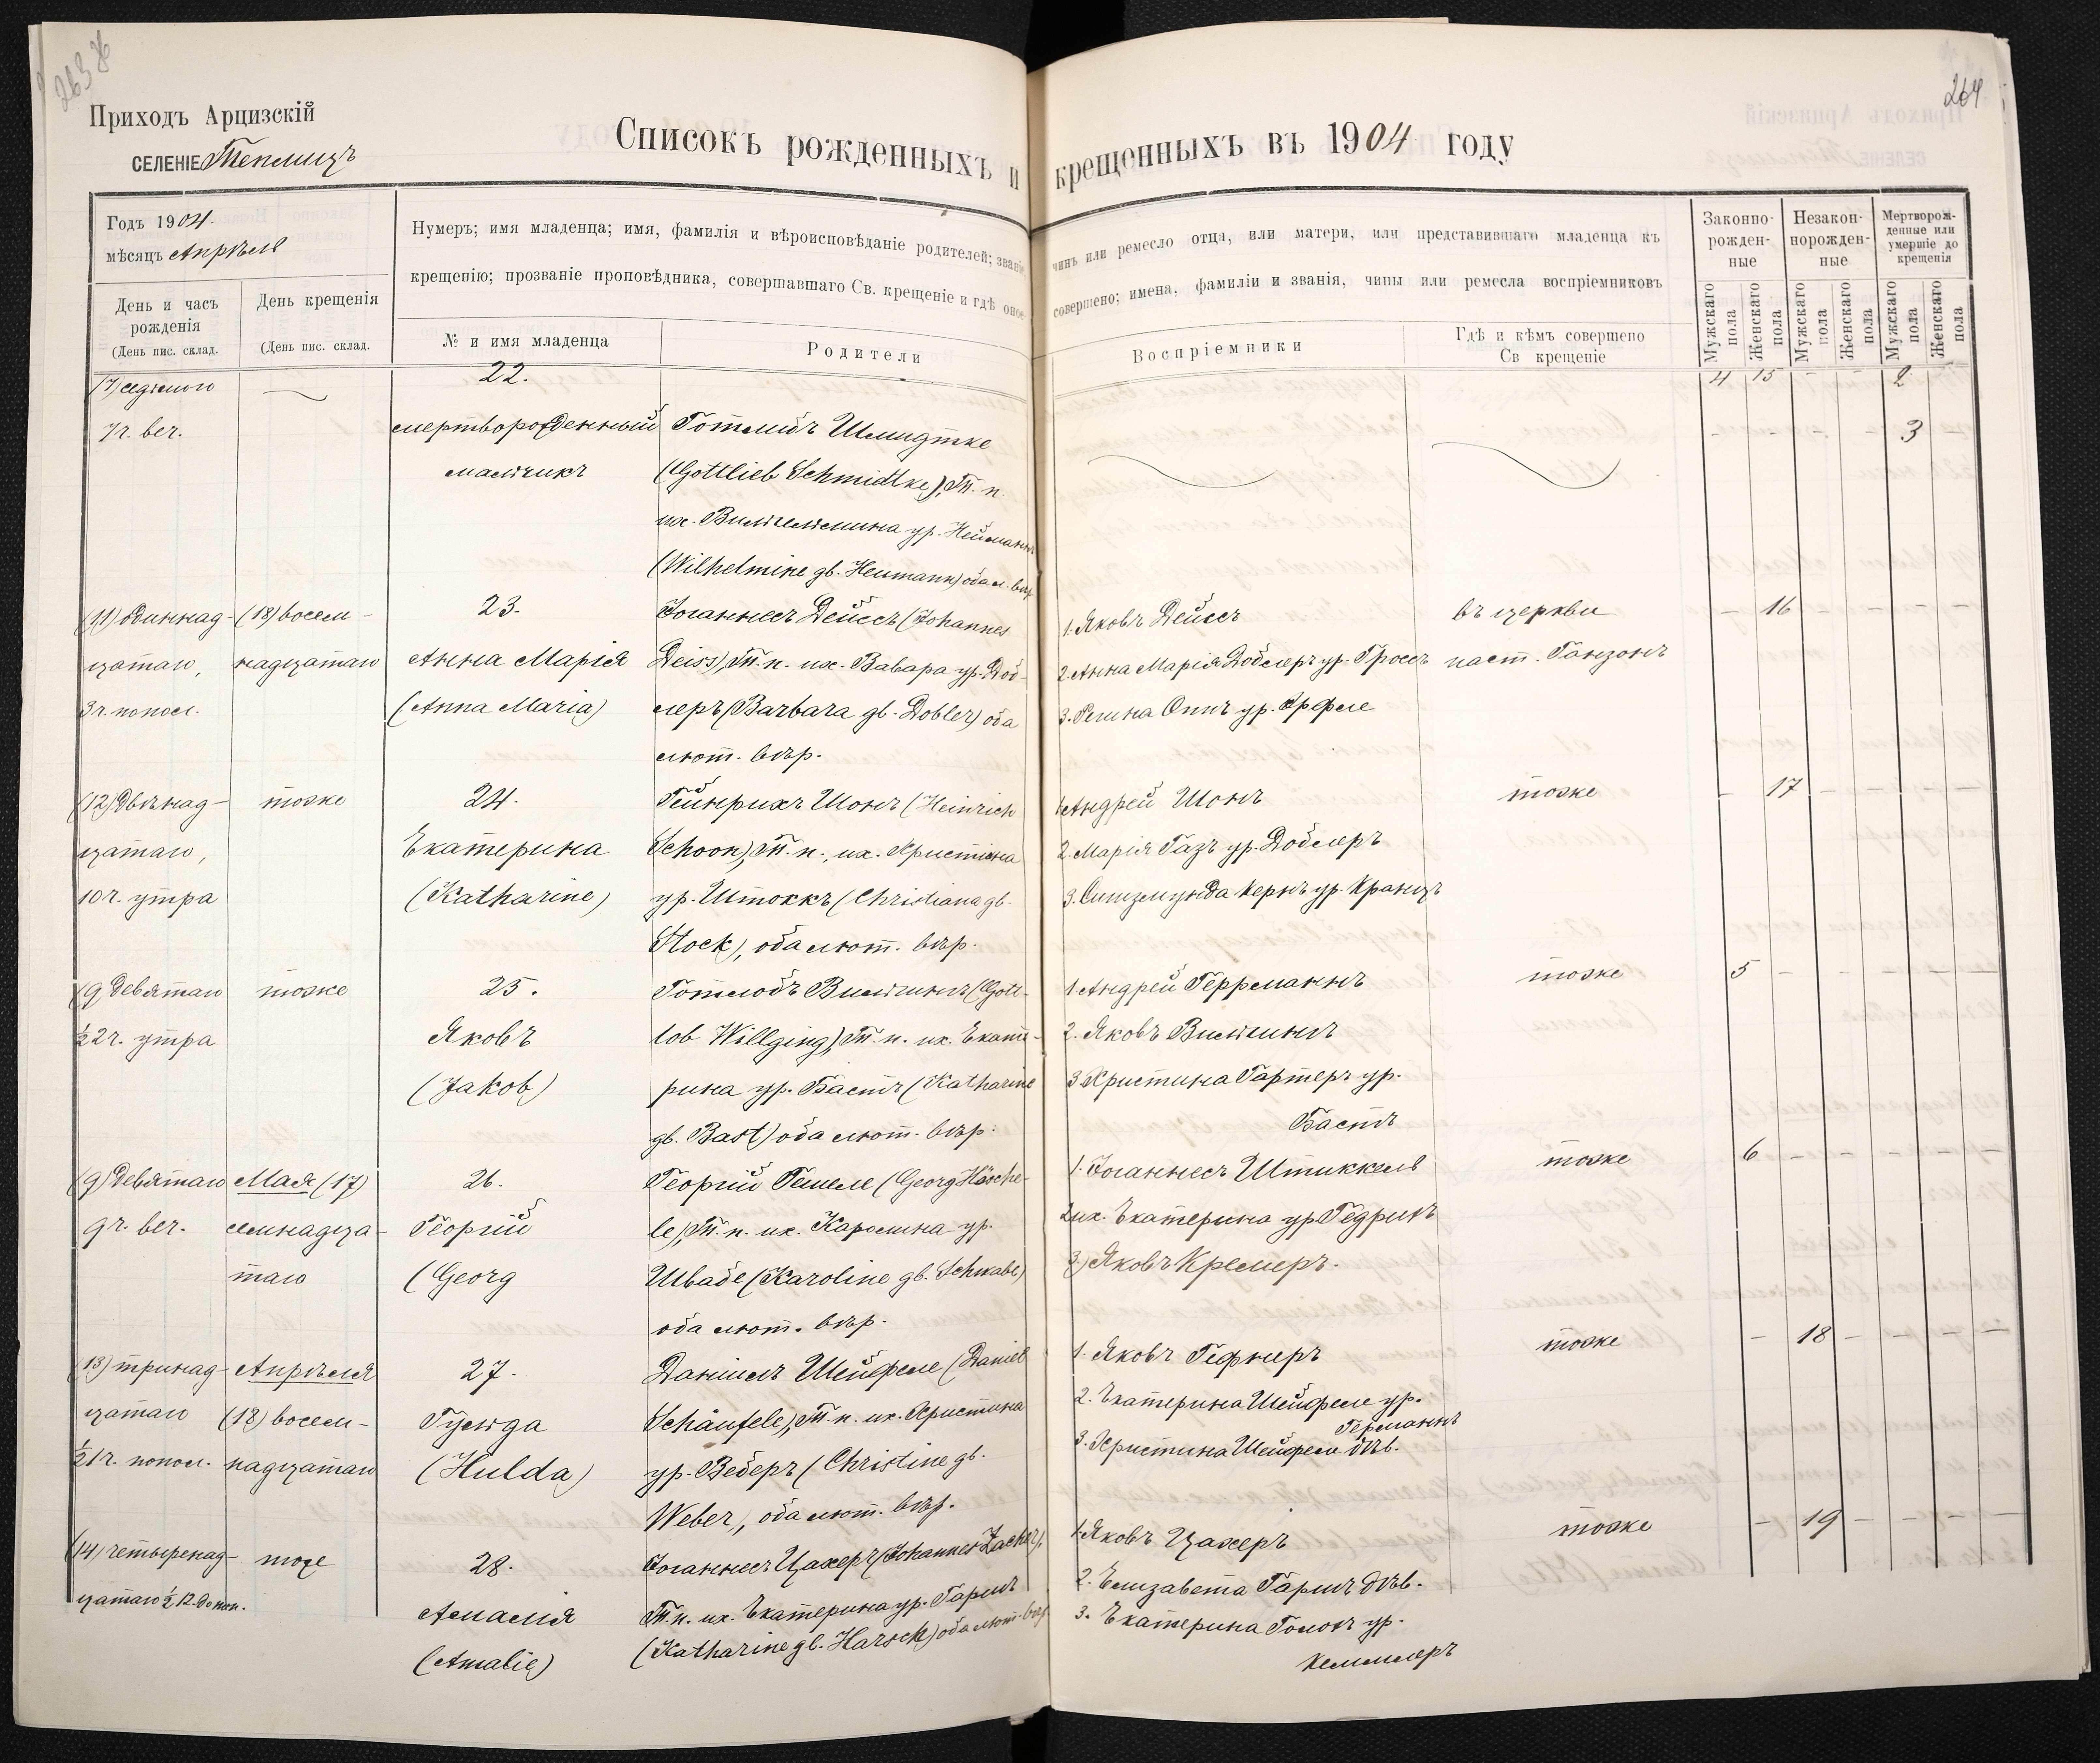 263 об
264
Приходъ Арцизскій
СЕЛЕНІЕ Теплицъ
Списокъ рожденныхъ и крещенныхъ въ 1904 году
Годъ 1904.
мѣсяцъ Апрѣль
День и часъ рожденія
(День пис. склад.
День крещенія
(День пис. склад.
Нумеръ; имя младенца; имя, фамилія и вѣроисповѣданіе родителей; званіе чинъ или ремесло отца, или матери, или представившаго младенца къ
крещенію; прозваніе проповѣдника, совершавшаго Св. крещеніе и гдѣ оное совершено; имена, фамиліи и званія, чины или ремесла воспріемниковъ
№ и имя младенца
Родители
Воспріемники
Гдѣ и кѣмъ совершено
Св крещеніе
Законно-
рожден-
ные
Незакон-
норожден-
ные
Мертворож-
денные или
умершіе до
крещенія
Мужскаго пола
Женскаго пола
Мужскаго пола
Женскаго пола
Мужскаго пола
Женскаго пола
4 15 - - 2
(7) седьмого
7 ч. веч.
22.
мертворожденный
мальчикъ
Готлибъ Шмидтке
(Gottlieb Schmidtke), Т. п.
иж. Вильгельмина ур. Нейманнъ
(Wilhelmine gb. Neumann) оба л. вѣр.
- - - - 3
(11) одиннад-
цатаго,
3 ч. попол.
(18) восем-
надцатаго
23.
Анна Марія
(Anna Maria)
Іоганнесъ Дейсъ (Johannes
Deiss), Т. п. иж. Вавара ур. Доб-
леръ (Barbara gb. Dobler) оба
лют. вѣр.
1. Яковъ Дейсъ
2. Анна Марія Доблеръ ур. Гроссъ
3. Регина Оппъ ур.
въ церкви
паст. Ганзонъ
- 16 - - - -
(12) Двѣнад-
цатаго,
10 ч. утра
тоже
24.
Екатерина
(Katharine)
Гейнрихъ Шонъ (Heinrich
Schoon), Т. п., иж. Христіана
ур. Штоккъ (Christiana gb.
Stock), оба лют. вѣр.
1. Андрей Шонъ
2. Марія Газъ ур. Доблеръ
3. Сигизмунда Кернъ ур. Кранцъ
тоже
- 17 - - - -
(9 Девятаго
½ 2 ч. утра
тоже
25.
Яковъ
(Jakob)
Готлобъ Вильгингъ (Gott-
lob Willging), Т. п. иж. Екате-
рина ур. Бастъ (Katharine
gb. Bast) оба лют. вѣр.
1. Андрей Геррманнъ
2. Яковъ Вильгингъ
3. Христина Гартеръ ур.
Бастъ
тоже
5 - - - - -
(9) Девятаго
9 ч. веч.
Мая (17)
семнадца-
таго
26.
Георгій
(Georg
Георгій Гешеле (Georg Häsche-
le), Т. п. иж. Каролина ур.
Швабе (Karoline gb. Schwabe)
оба лют. вѣр.
1. Іоганнесъ Штиккель
2. иж. Екатерина ур. Гедрихъ
3) Яковъ Кремеръ.
тоже
6 - - - - -
(13) тринад-
цатаго
½ 1 ч. попол.
Апрѣля
(18) восем-
надцатаго
27.
Гульда
(Hulda)
Даніилъ Шейфеле (Daniel
Schäufele), Т. п. иж. Христина
ур. Веберъ (Christine gb.
Weber), оба лют. вѣр.
1. Яковъ Гефнеръ
2. Екатерина Шейфеле ур.
Германнъ
3. Христина Шейфеле дѣв.
тоже
- 18 - - - -
(14) четыренад-
цатаго ½ 12. до пол.
тоже
28.
Амалія
(Amalie)
Іоганнесъ Цахеръ (Johannes Zacher),
Т. п. иж. Екатерина ур. Гаршъ
(Katharine gb. Harsch) оба лют. вѣр
1. Яковъ Цахеръ
2. Елизавета Гаршъ дѣв.
3. Екатерина ур.
Кеммлеръ
тоже
- 19 - - - -